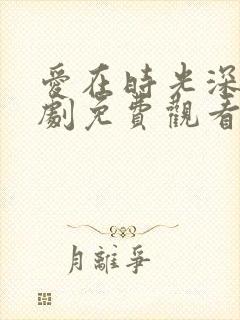 愛在時光深
劇免費觀看
月離爭